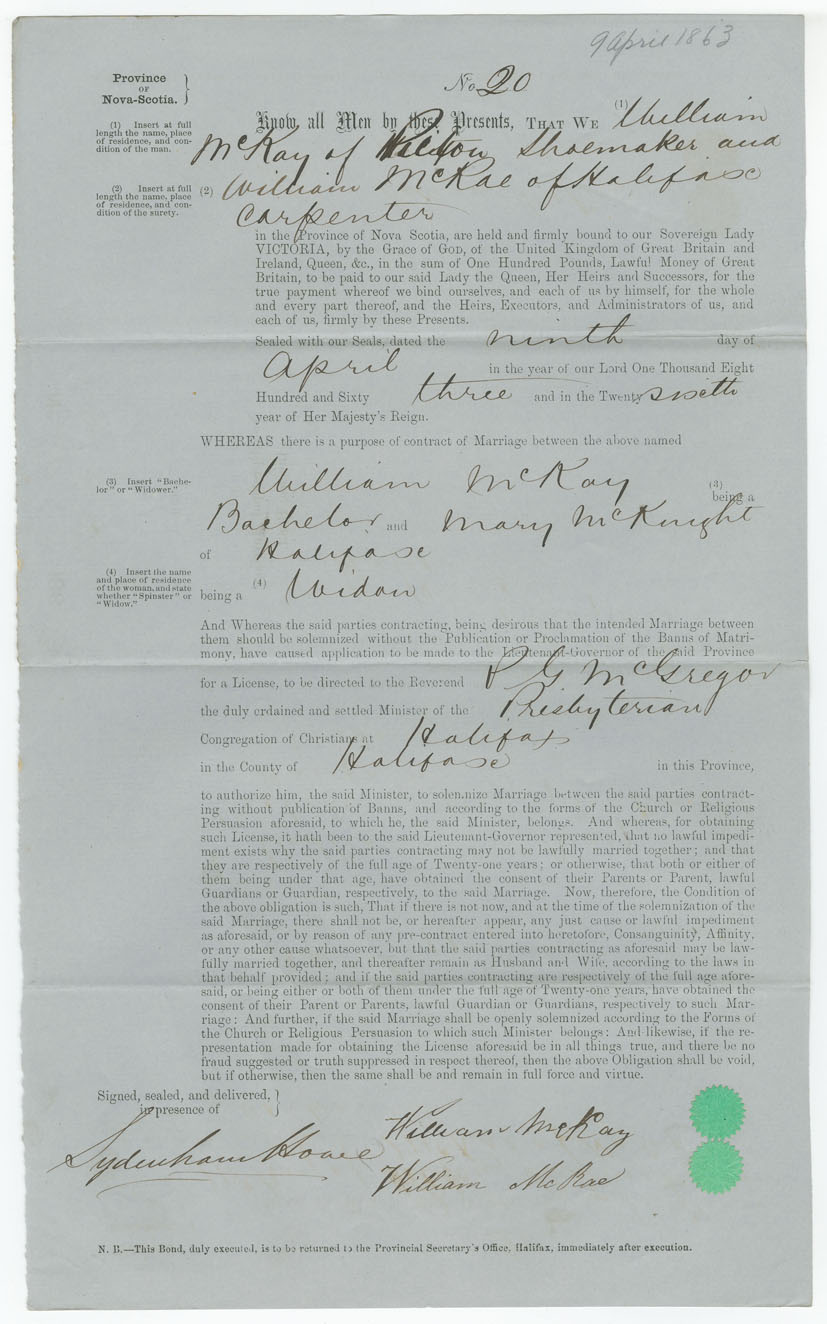 9 April 1863
Province
OF
Nova-Scotia.
No 20
(1) Insert at full
length the name, place
of residence, and con-
dition of the man.
Know all Men by these Presents, THAT WE (1) William
McKay of Shoemaker and
(2) Insert at full
length the name, place
of residence, and con-
dition of the surety.
(2) William McRae of Halifax
Carpenter
in the Province of Nova Scotia, are held and firmly bound to our Sovereign Lady
VICTORIA, by the Grace of GOD, of the United Kingdom of Great Britain and
Ireland, Queen, &c., in the sum of One Hundred Pounds, Lawful Money of Great
Britain, to be paid to our said Lady the Queen, Her Heirs and Successors, for the
true payment whereof we bind ourselves, and each of us by himself, for the whole
and every part thereof, and the Heirs, Executors, and Administrators of us, and
each of us, firmly by these Presents.
Sealed with our Seals, dated the ninth day of
April in the year of our Lord One Thousand Eight
Hundred and Sixty three and in the Twenty sixth
year of Her Majesty's Reign.
WHEREAS there is a purpose of contract of Marriage between the above named
(3) Insert "Bache-
lor" or "Widower."
William McKay (3)
being a
Bachelor and Mary McKnight
of Halifax
(4) Insert the name
and place of residence
of the woman, and state
whether "Spinster" or
"Widow."
being a (4) Widow
And Whereas the said parties contracting, being desirous that the intended Marriage between
them should be solemnized without the Publication or Proclamation of the Banns of Matri-
mony, have caused application to be made to the Lieutenant-Governor of the said Province
for a License, to be directed to the Reverend P G McGregor
the duly ordained and settled Minister of the Presbyterian
Congregation of Christians at Halifax
in the County of Halifax in this Province,
to authorize him, the said Minister, to solemnize Marriage between the said parties contract-
ing without publication of Banns, and according to the forms of the Church or Religious
Persuasion aforesaid, to which he, the said Minister, belongs. And whereas, for obtaining
such License, it hath been to the said Lieutenant-Governor represented, that no lawful impedi-
ment exists why the said parties contracting may not be lawfully married together; and that
they are respectively of the full age of Twenty-one years; or otherwise, that both or either of
them being under that age, have obtained the consent of their Parents or Parent, lawful
Guardians or Guardian, respectively, to the said Marriage. Now, therefore, the Condition of
the above obligation is such, That if there is not now, and at the time of the solemnization of the
said Marriage, there shall not be, or hereafter appear, any just cause or lawful impediment
as aforesaid, or by reason of any pre-contract entered into heretofore, Consanguinity, Affinity,
or any other cause whatsoever, but that the said parties contracting as aforesaid may be law-
fully married together, and thereafter remain as Husband and Wife, according to the laws in
that behalf provided; and if the said parties contracting are respectively of the full age afore-
said, or being either or both of them under the full age of Twenty-one years, have obtained the
consent of their Parent or Parents, lawful Guardian or Guardians, respectively to such Mar-
riage: And further, if the said Marriage shall be openly solemnized according to the Forms of
the Church or Religious Persuasion to which such Minister belongs: And likewise, if the re-
presentation made for obtaining the License aforesaid be in all things true, and there be no
fraud suggested or truth suppressed in respect thereof, then the above Obligation shall be void,
but if otherwise, then the same shall be and remain in full force and virtue.
Signed, sealed, and delivered,
in presence of
William McKay
Sydenham Howe
William McRae
N. B.—This Bond, duly executed, is to be returned to the Provincial Secretary's Office, Halifax, immediately after execution.